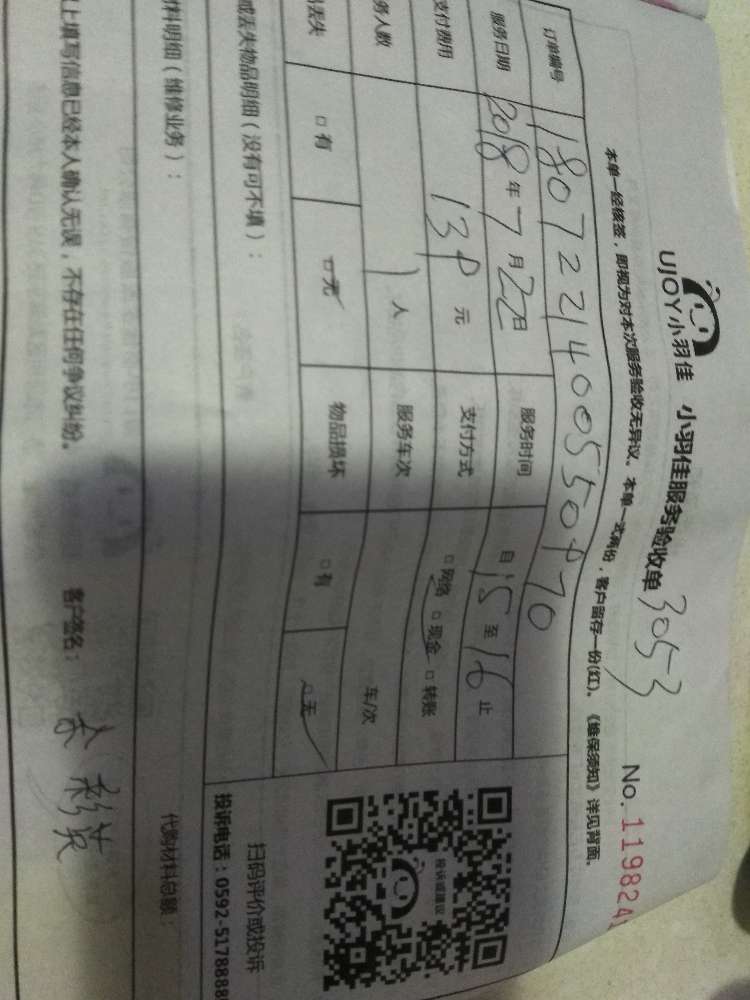 UJOY小羽佳 小羽佳服务验收单 3053 No. 119824
本单一经核签，即视为对本次服务验收无异议。本单一式两份，客户留存一份(红)。《维保须知》详见背面。
订单编号 1807221400550970
服务日期 2018年7月22日 服务时间 自15至16止
支付费用 139元 支付方式 □网络 □现金 □转账
务人数 1人 服务车次 车/次
丢失 □有 □无 物品损坏 □有 □无
或丢失物品明细（没有可不填）：
扫码评价或投诉
投诉电话：0592-5178888
料明细（维修业务）： 代购材料总额：
上填写信息已经本人确认无误，不存在任何争议纠纷。 客户签名：
投诉或建议